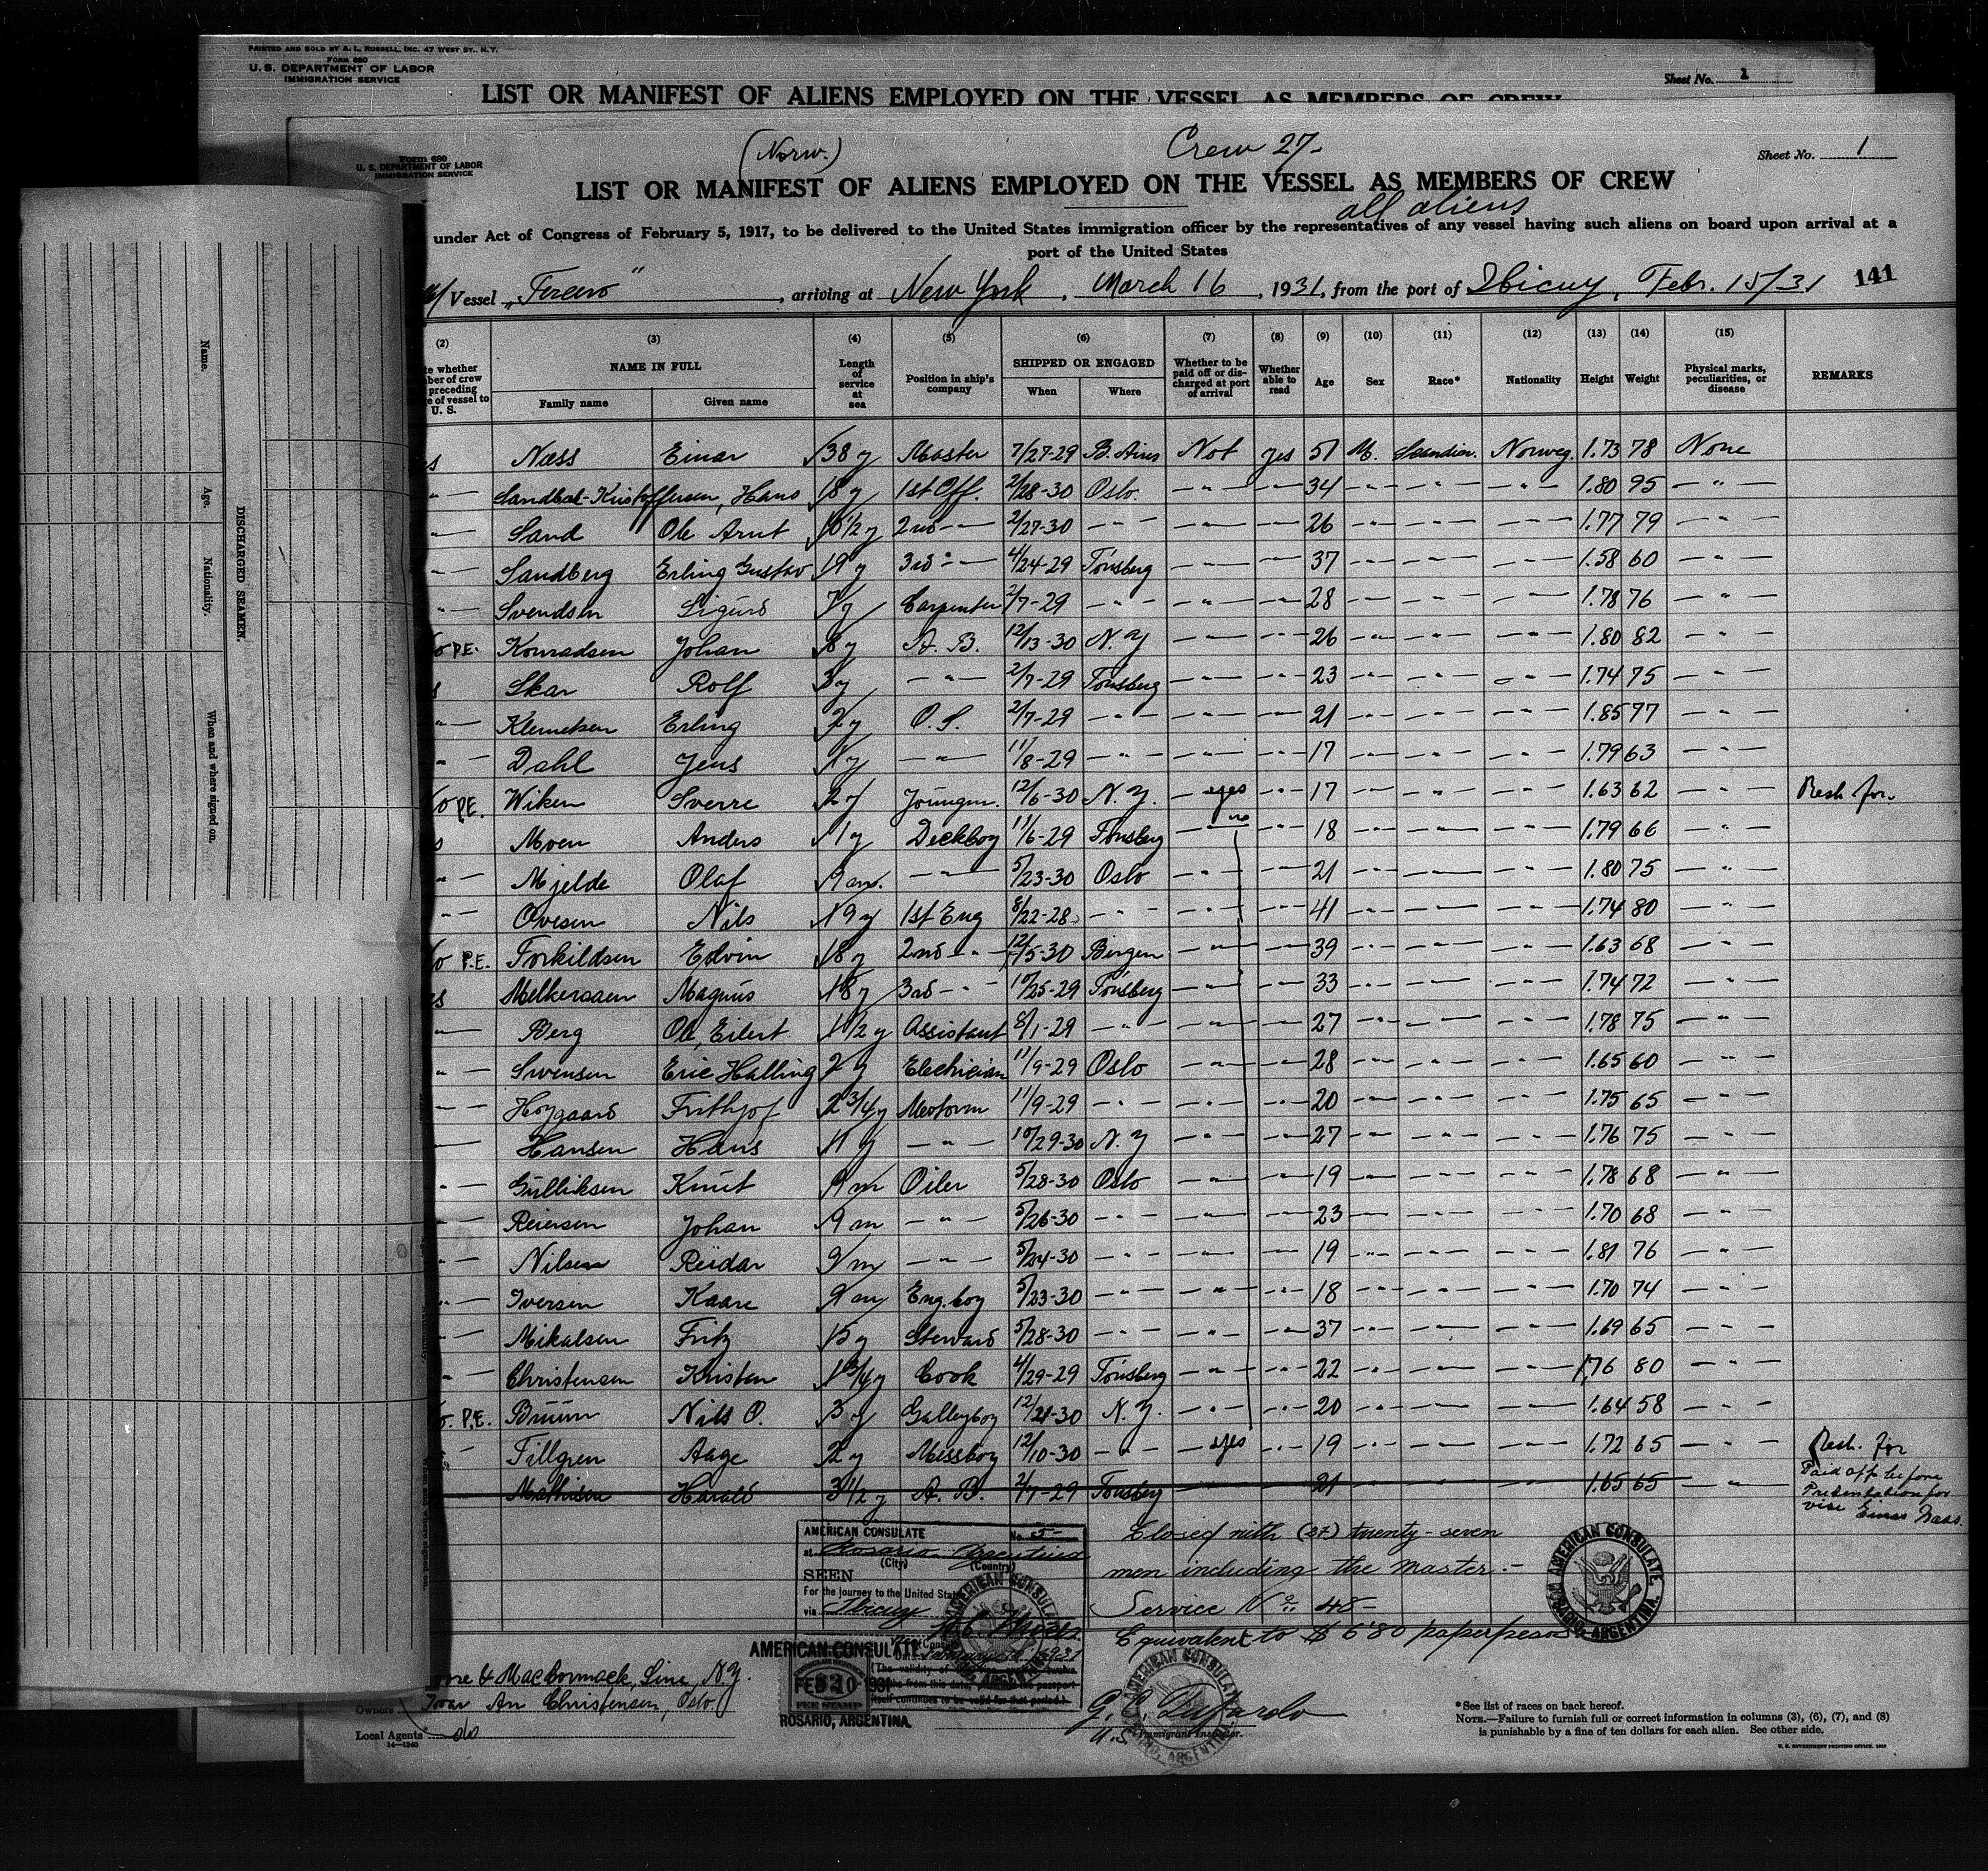 PRINTED AND SOLD BY A. L. RUSSELL, INC. 47 WEST ST., N. Y.
FORM 680
U. S. DEPARTMENT OF LABOR
IMMIGRATION SERVICE
Sheet No. 1
LIST OR MANIFEST OF ALIENS EMPLOYED ON THE VESSEL AS MEMBERS OF CREW
(Norw.) Crew 27-
Form 680
U. S. DEPARTMENT OF LABOR
IMMIGRATION SERVICE
Sheet No. 1
LIST OR MANIFEST OF ALIENS EMPLOYED ON THE VESSEL AS MEMBERS OF CREW
all aliens
under Act of Congress of February 5, 1917, to be delivered to the United States immigration officer by the representatives of any vessel having such aliens on board upon arrival at a
port of the United States
Vessel arriving at New York, March 16, 1931, from the port of Ibicuy, Febr. 15/31 141
(2) (3) (4) (5) (6) (7) (8) (9) (10) (11) (12) (13) (14) (15)
te whether
ber of crew
preceding
e of vessel to
U. S.
NAME IN FULL
Family name Given name
Length
of
service
at
sea
Position in ship's
company
SHIPPED OR ENGAGED
When Where
Whether to be
paid off or dis-
charged at port
of arrival
Whether
able to
read
Age Sex Race* Nationality Height Weight
Physical marks,
peculiarities, or
disease
REMARKS
s Næss Einar 38 y Master 7/27-29 B. Aires Not yes 51 M. Scandin. Norweg. 1.73 78 None
-"- Hans 18 y 1st Off. 2/28-30 Oslo. -"- -"- 34 -"- -"- -"- 1.80 95 -"-
-"- Sand Ole Arnt 10 1/2 y 2nd -"- 2/27-30 -"- -"- -"- 26 -"- -"- -"- 1.77 79 -"-
-"- Sandberg Erling Gustav 19 y 3rd -"- 4/24-29 Tönsberg -"- -"- 37 -"- -"- -"- 1.58 60 -"-
-"- Svendsen Sigurd 7 y Carpenter 2/7-29 -"- -"- -"- 28 -"- -"- -"- 1.78 76 -"-
o P.E. Konradsen Johan 8 y A. B. 12/13-30 N. Y -"- -"- 26 -"- -"- -"- 1.80 82 -"-
s Skar Rolf 3 y -"- 2/7-29 Tönsberg -"- -"- 23 -"- -"- -"- 1.74 75 -"-
-"- Klemetsen Erling 2 y O. S. 2/7-29 -"- -"- -"- 21 -"- -"- -"- 1.85 77 -"-
-"- Dahl Jens 1 y -"- 11/8-29 -"- -"- -"- 17 -"- -"- -"- 1.79 63 -"-
o P.E. Wiken Sverre 2 y Youngm. 12/6-30 N. Y. yes -"- 17 -"- -"- -"- 1.63 62 -"- Resh. for.
s Moen Anders 1 y Deckboy 11/6-29 Tönsberg no -"- 18 -"- -"- -"- 1.79 66 -"-
-"- Mjelde Olaf 9 m. -"- 5/23-30 Oslo -"- -"- 21 -"- -"- -"- 1.80 75 -"-
-"- Ovesen Nils 19 y 1st Eng 8/22-28 -"- -"- -"- 41 -"- -"- -"- 1.74 80 -"-
o P.E. Torkildsen Edvin 18 y 2nd -"- 12/5-30 Bergen -"- -"- 39 -"- -"- -"- 1.63 68 -"-
es Melkersen Magnus 18 y 3rd -"- 10/25-29 Tönsberg -"- -"- 33 -"- -"- -"- 1.74 72 -"-
-"- Berg Ole, Eilert 1 1/2 y Assistant 8/1-29 -"- -"- -"- 27 -"- -"- -"- 1.78 75 -"-
-"- Swensen Eric Halling 2 y Electrician 11/9-29 Oslo -"- -"- 28 -"- -"- -"- 1.65 60 -"-
-"- Hoygaard Frithjof 2 3/4 y 11/9-29 -"- -"- -"- 20 -"- -"- -"- 1.75 65 -"-
-"- Hansen Hans 1 y -"- 10/29-30 N. Y -"- -"- 27 -"- -"- -"- 1.76 75 -"-
-"- Gulliksen Knut 9 m Oiler 5/28-30 Oslo -"- -"- 19 -"- -"- -"- 1.78 68 -"-
-"- Reiersen Johan 9 m -"- 5/26-30 -"- -"- -"- 23 -"- -"- -"- 1.70 68 -"-
-"- Nilsen Reidar 9 m -"- 5/24-30 -"- -"- -"- 19 -"- -"- -"- 1.81 76 -"-
-"- Iversen Kaare 9 m Eng. boy 5/23-30 -"- -"- -"- 18 -"- -"- -"- 1.70 74 -"-
-"- Mikalsen Fritz 15 y Steward 5/28-30 -"- -"- -"- 37 -"- -"- -"- 1.69 65 -"-
-"- Christensen Kristen 1 3/4 y Cook 4/29-29 Tönsberg -"- -"- 22 -"- -"- -"- 1.76 80 -"-
o. P.E. Bruun Nils O. 3 y Galleyboy 12/21-30 N. Y. -"- -"- 20 -"- -"- -"- 1.64 58 -"-
-"- Tillgren Aage 2 y Messboy 12/10-30 -"- yes -"- 19 -"- -"- -"- 1.72 65 -"- Resh. for
Mathisen Harald 3 1/2 y A. B. 2/7-29 Tonsberg 21 1.65 65 -"- Paid off before
Presentation for
vise Einar Næss.
AMERICAN CONSULATE No. 5-
at Rosario, Argentina
(City) (Country)
SEEN
For the journey to the United States
via Ibicuy
Closed with (27) twenty-seven
men including the master.-
Service No. 48-
Equivalent to $ 6.80 paperpesos
AMERICAN CONSULATE
ROSARIO, ARGENTINA.
AMERICAN CONSULATE
FEB 20 1931
FEE STAMP
ROSARIO, ARGENTINA.
(The validity of
from this date,
itself continues to be valid for that period.)
AMERICAN CONSULATE
ROSARIO, ARGENTINA.
ore & MacCormack, Line, N.Y.
Owners Ivar An Christensen, Oslo.
Local Agents do
14-1240
Immigrant Inspector.
*See list of races on back hereof.
NOTE.—Failure to furnish full or correct information in columns (3), (6), (7), and (8)
is punishable by a fine of ten dollars for each alien. See other side.
U. S. GOVERNMENT PRINTING OFFICE
DISCHARGED SEAMEN.
Name. Age. Nationality. When and where signed on.